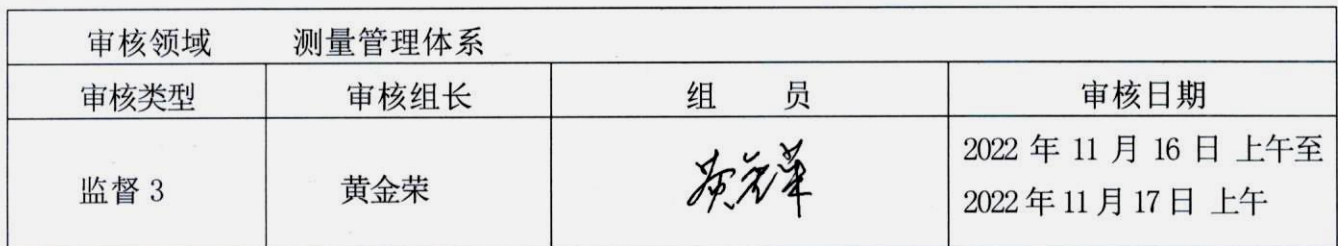 审核领域 测量管理体系
审核类型 审核组长 组 员 审核日期
监督 3 黄金荣 2022 年 11 月 16 日 上午至
2022 年 11 月 17 日 上午